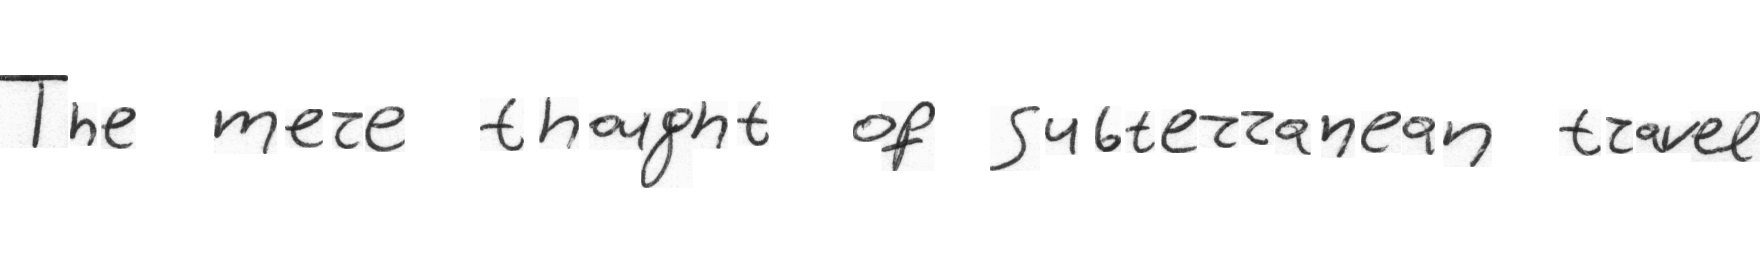 The mere thought of subterranean travel